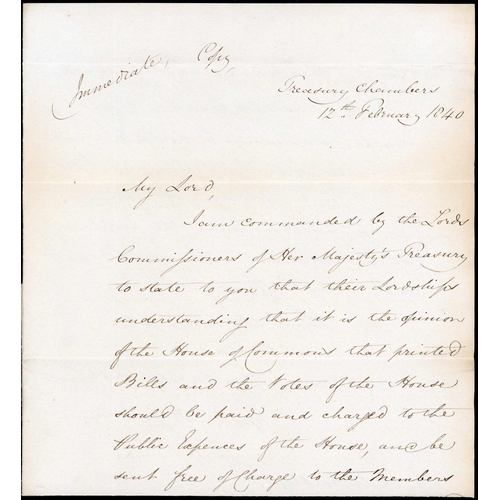 Immediate, Copy
Treasury Chambers
12th February 1840
My Lord,
I am commanded by the Lords
Commissioners of Her Majesty's Treasury
to state to you that their Lordships
understanding that it is the opinion
of the House of Commons that printed
Bills and the Votes of the House
should be paid and charged to the
Public Expences of the House, and be
sent free of Charge to the Members